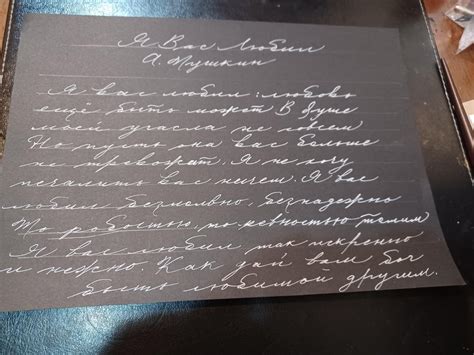 Я Вас Любил
А. Пушкин
Я вас любил: любовь
ещё быть может В душе
моей угасла не совсем
Но пусть она вас больше
не тревожит. Я не хочу
печалить вас ничем. Я вас
любил безмолвно, безнадежно
То робостью, то ревностью томим
Я вас любил так искренно
и нежно. Как дай вам бог
быть любимой другим.